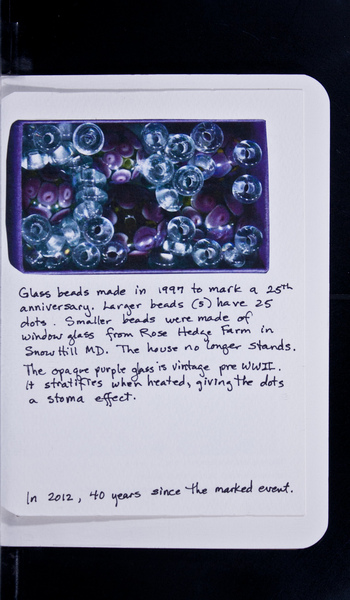 Glass beads made in 1997 to mark a 25th
anniversary. Larger beads (5) have 25
dots. Smaller beads were made of
window glass from Rose Hedge Farm in
Snow Hill MD. The house no longer stands.
The opaque purple glass is vintage pre WWII.
It stratifies when heated, giving the dots
a stoma effect.
In 2012, 40 years since the marked event.